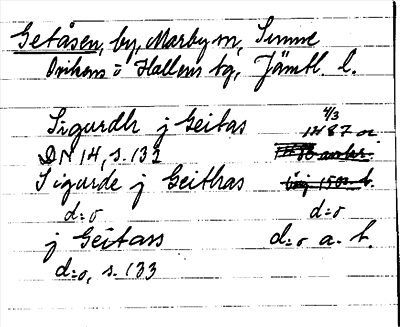 Getåsen, by, Marby sn, Sunne
Ovikens o Hallens tg, Jämtl. l.
Sigurdh j Geitas 4/3 1487 or
DN 14, s. 133
Sigurde j Geithas
d:o d:o
j Geitass d:o a. b.
d:o, s. 133